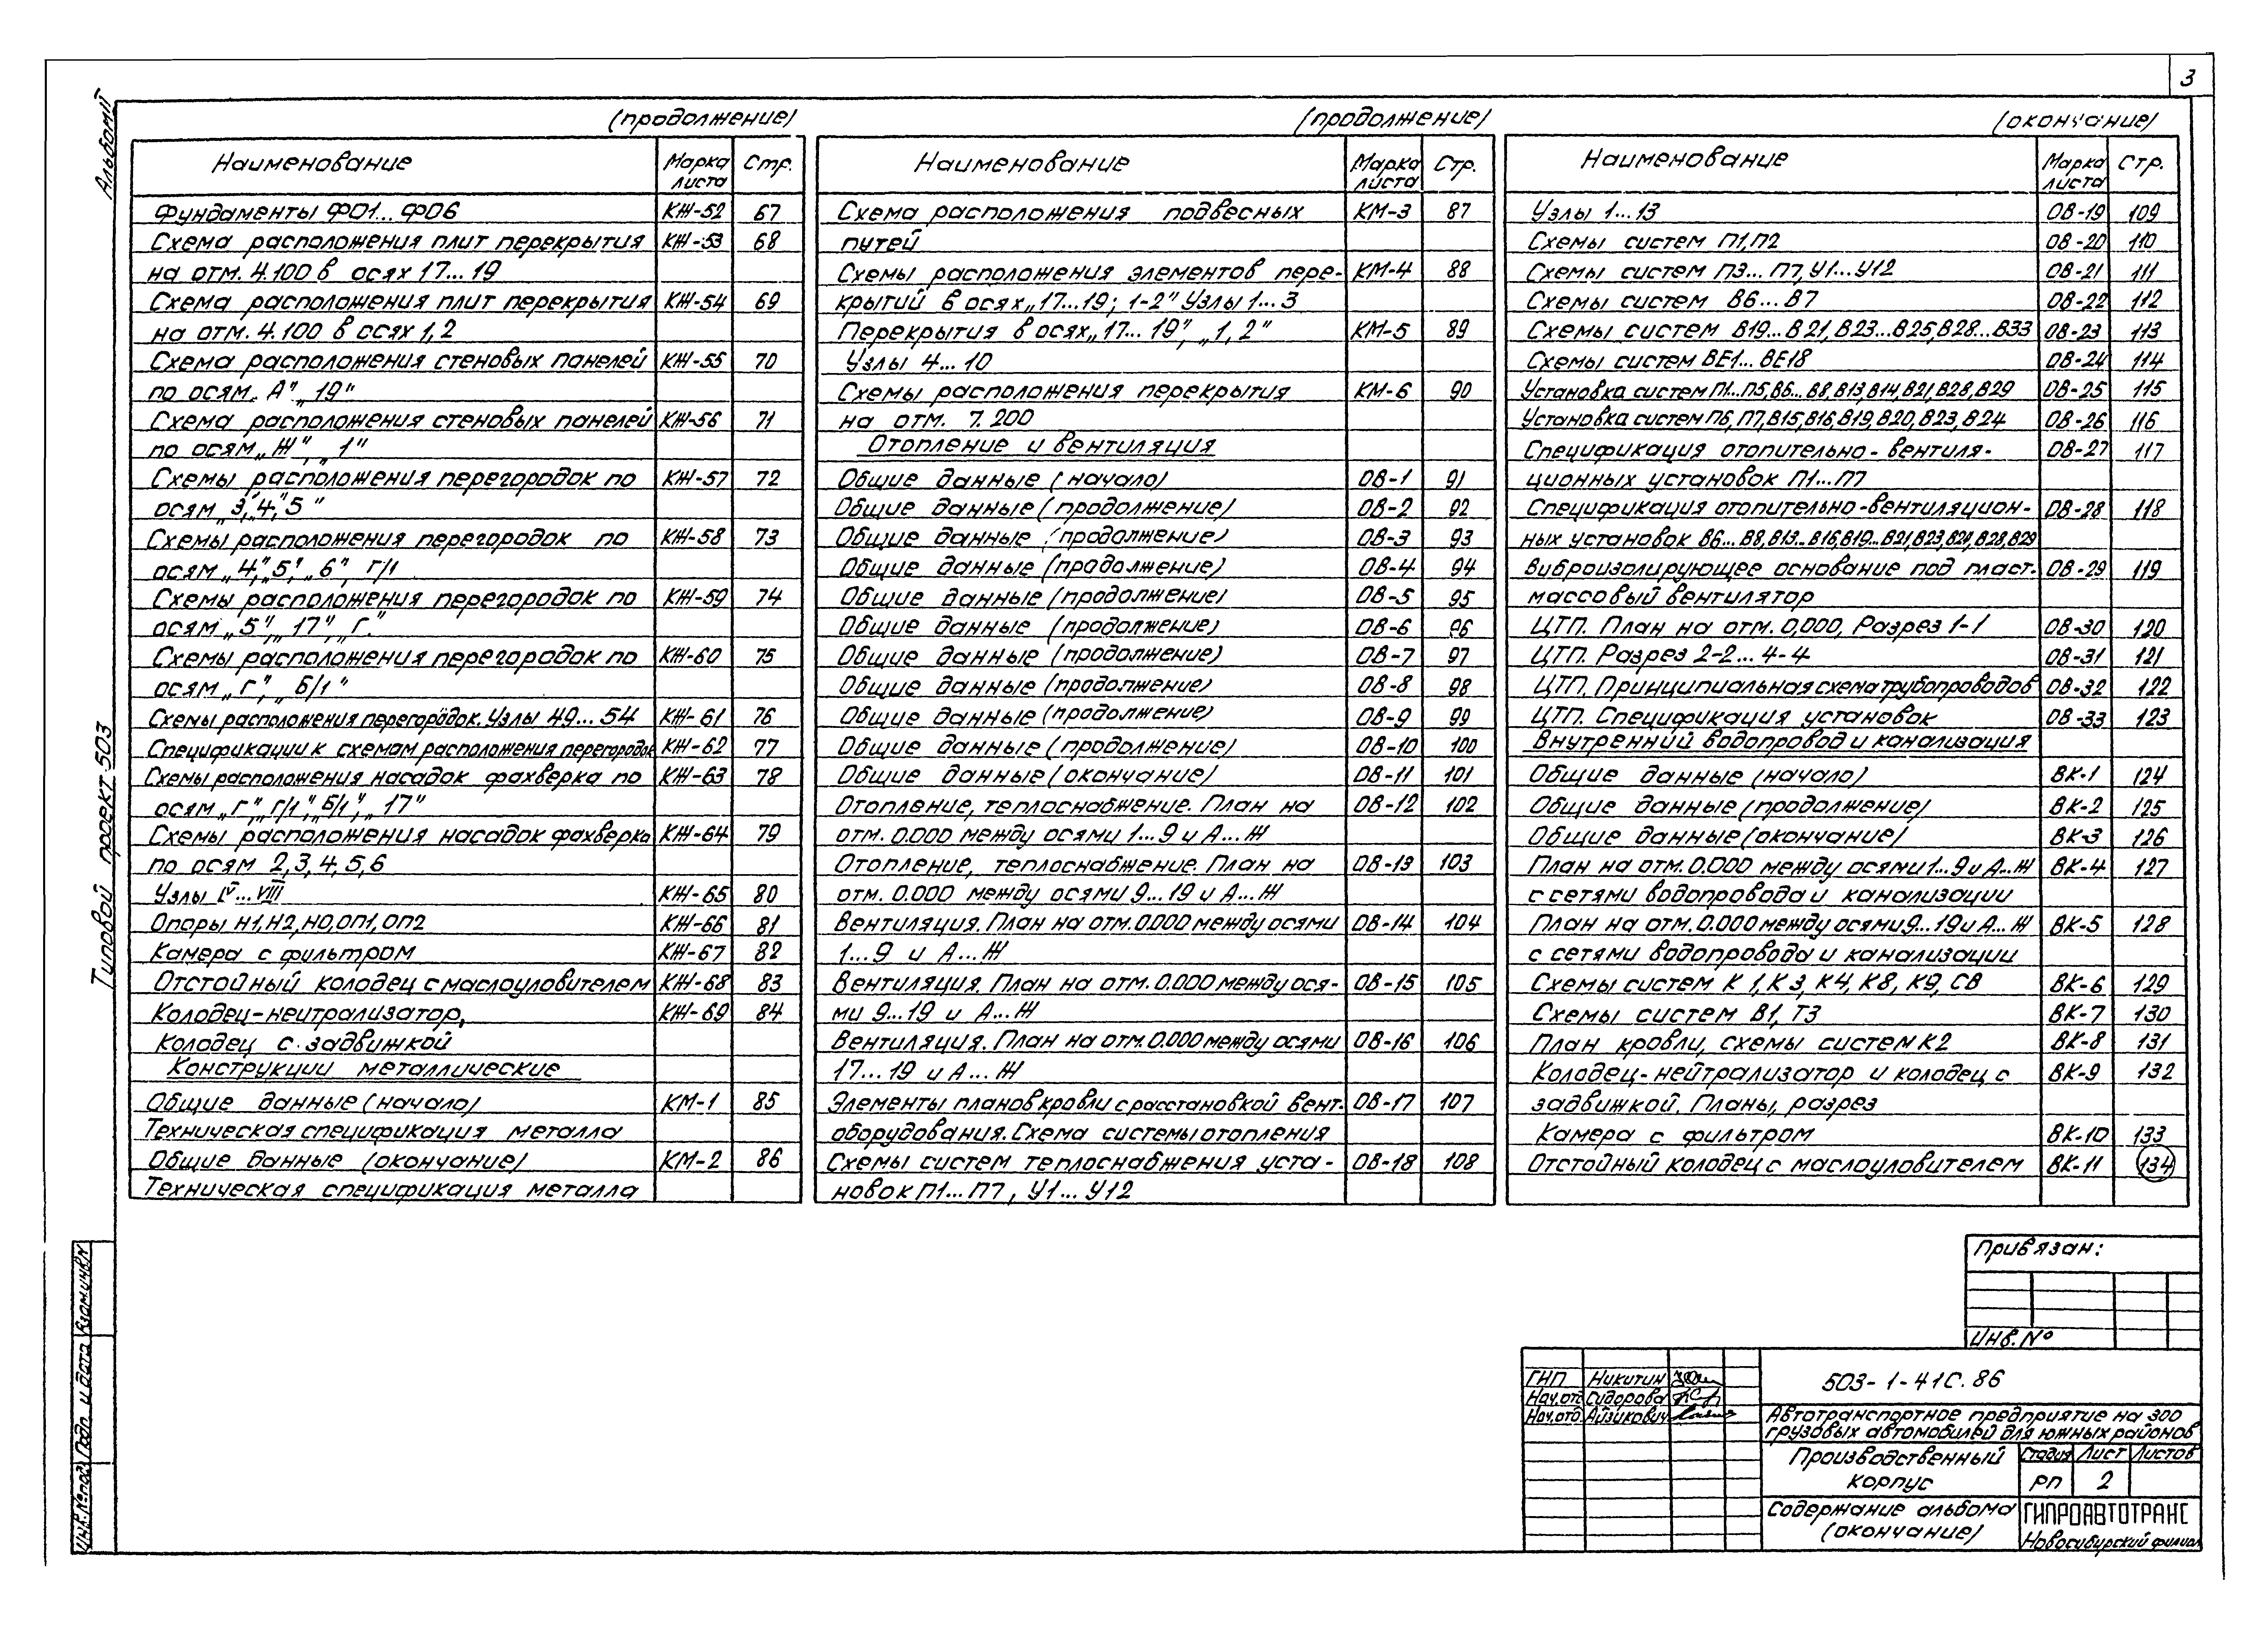 3
Альбом II
Типовой проект 503
(продолжение)
Наименование Марка листа Стр.
Фундаменты ФО1...ФО6 КЖ-52 67
Схема расположения плит перекрытия КЖ-53 68
на отм. 4.100 в осях 17...19
Схема расположения плит перекрытия КЖ-54 69
на отм. 4.100 в осях 1,2
Схема расположения стеновых панелей КЖ-55 70
по осям „А" „19"
Схема расположения стеновых панелей КЖ-56 71
по осям „Ж", „1"
Схемы расположения перегородок по КЖ-57 72
осям „3", „4", „5"
Схемы расположения перегородок по КЖ-58 73
осям „4", „5", „6", Г/1
Схемы расположения перегородок по КЖ-59 74
осям „5", „17", „Г."
Схемы расположения перегородок по КЖ-60 75
осям „Г", „Б/1"
Схемы расположения перегородок. Узлы 49...54 КЖ-61 76
Спецификации к схемам расположения перегородок КЖ-62 77
Схемы расположения насадок фахверка по КЖ-63 78
осям „Г", „Г/1", „Б/1", „17"
Схемы расположения насадок фахверка КЖ-64 79
по осям 2,3,4,5,6
Узлы IV...VIII КЖ-65 80
Опоры Н1,Н2,НО,ОП1,ОП2 КЖ-66 81
Камера с фильтром КЖ-67 82
Отстойный колодец с маслоуловителем КЖ-68 83
Колодец-нейтрализатор, КЖ-69 84
Колодец с задвижкой
Конструкции металлические
Общие данные (начало) КМ-1 85
Техническая спецификация металла
Общие данные (окончание) КМ-2 86
Техническая спецификация металла
(продолжение)
Наименование Марка листа Стр.
Схема расположения подвесных КМ-3 87
путей
Схемы расположения элементов пере- КМ-4 88
крытий в осях „17...19; 1-2" Узлы 1...3
Перекрытия в осях „17...19", „1,2" КМ-5 89
Узлы 4...10
Схемы расположения перекрытия КМ-6 90
на отм. 7.200
Отопление и вентиляция
Общие данные (начало) ОВ-1 91
Общие данные (продолжение) ОВ-2 92
Общие данные (продолжение) ОВ-3 93
Общие данные (продолжение) ОВ-4 94
Общие данные (продолжение) ОВ-5 95
Общие данные (продолжение) ОВ-6 96
Общие данные (продолжение) ОВ-7 97
Общие данные (продолжение) ОВ-8 98
Общие данные (продолжение) ОВ-9 99
Общие данные (продолжение) ОВ-10 100
Общие данные (окончание) ОВ-11 101
Отопление, теплоснабжение. План на ОВ-12 102
отм. 0.000 между осями 1...9 и А...Ж
Отопление, теплоснабжение. План на ОВ-13 103
отм. 0.000 между осями 9...19 и А...Ж
Вентиляция. План на отм. 0.000 между осями ОВ-14 104
1...9 и А...Ж
Вентиляция. План на отм. 0.000 между ося- ОВ-15 105
ми 9...19 и А...Ж
Вентиляция. План на отм. 0.000 между осями ОВ-16 106
17...19 и А...Ж
Элементы планов кровли с расстановкой вент. ОВ-17 107
оборудования. Схема системы отопления
Схемы систем теплоснабжения уста- ОВ-18 108
новок П1...П7, У1...У12
(окончание)
Наименование Марка листа Стр.
Узлы 1...13 ОВ-19 109
Схемы систем П1,П2 ОВ-20 110
Схемы систем П3...П7, У1...У12 ОВ-21 111
Схемы систем В6...В7 ОВ-22 112
Схемы систем В19...В21, В23...В25, В28...В33 ОВ-23 113
Схемы систем ВЕ1...ВЕ18 ОВ-24 114
Установка систем П1...П5, В6...В8, В13, В14, В21, В28, В29 ОВ-25 115
Установка систем П6, П7, В15, В16, В19, В20, В23, В24 ОВ-26 116
Спецификация отопительно-вентиля- ОВ-27 117
ционных установок П1...П7
Спецификация отопительно-вентиляцион- ОВ-28 118
ных установок В6...В8, В13...В16, В19...В21, В23, В24, В28, В29
Виброизолирующее основание под пласт. ОВ-29 119
массовый вентилятор
ЦТП. План на отм. 0,000, Разрез 1-1 ОВ-30 120
ЦТП. Разрез 2-2...4-4 ОВ-31 121
ЦТП. Принципиальная схема трубопроводов ОВ-32 122
ЦТП. Спецификация установок ОВ-33 123
Внутренний водопровод и канализация
Общие данные (начало) ВК-1 124
Общие данные (продолжение) ВК-2 125
Общие данные (окончание) ВК-3 126
План на отм. 0.000 между осями 1...9 и А...Ж ВК-4 127
с сетями водопровода и канализации
План на отм. 0.000 между осями 9...19 и А...Ж ВК-5 128
с сетями водопровода и канализации
Схемы систем К1, К3, К4, К8, К9, СВ ВК-6 129
Схемы систем В1, Т3 ВК-7 130
План кровли, схемы систем К2 ВК-8 131
Колодец-нейтрализатор и колодец с ВК-9 132
задвижкой. Планы, разрез
Камера с фильтром ВК-10 133
Отстойный колодец с маслоуловителем ВК-11 134
Привязан:
Инв. №
ГИП Никитин
Нач.отд Сидорова
Нач.отд. Айзикович
503-1-41С.86
Автотранспортное предприятие на 300
грузовых автомобилей для южных районов
Производственный корпус
Стадия Лист Листов
РП 2
Содержание альбома (окончание)
ГИПРОАВТОТРАНС
Новосибирский филиал
Инв.№ подл. Подп. и дата Взам.инв.№